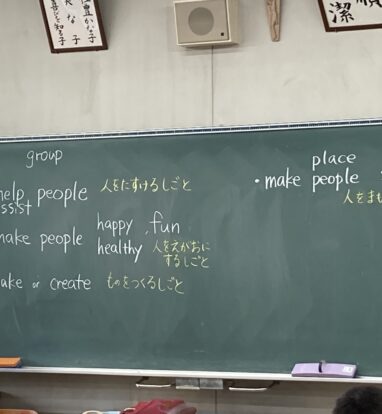 group
help people 人をたすけるしごと
assist
make people happy, fun
healthy 人をえがおに
するしごと
make or create ものをつくるしごと
place
・make people
人をま